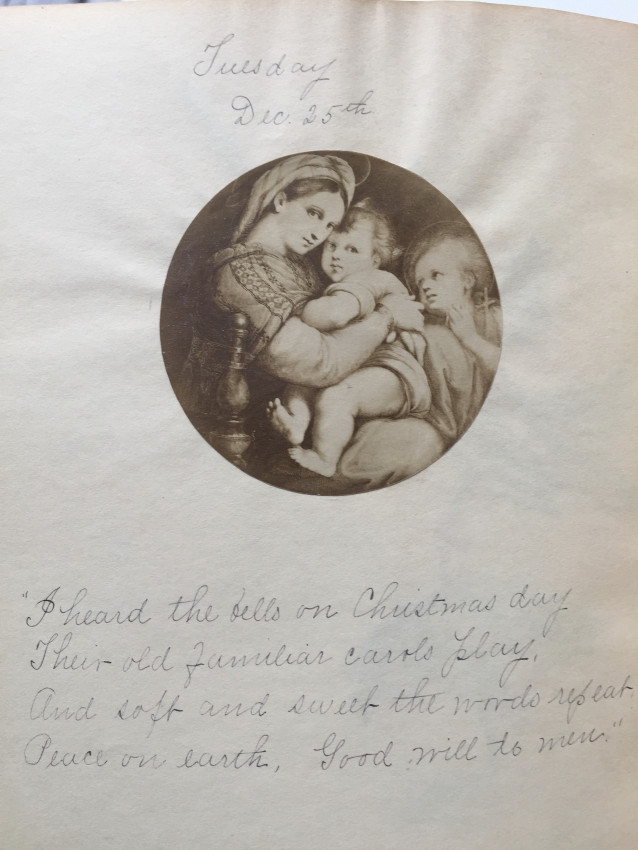 Tuesday
Dec. 25th
"I heard the bells on Christmas day
Their old familiar carols play,
And soft and sweet the words repeat,
Peace on earth, Good will to men."